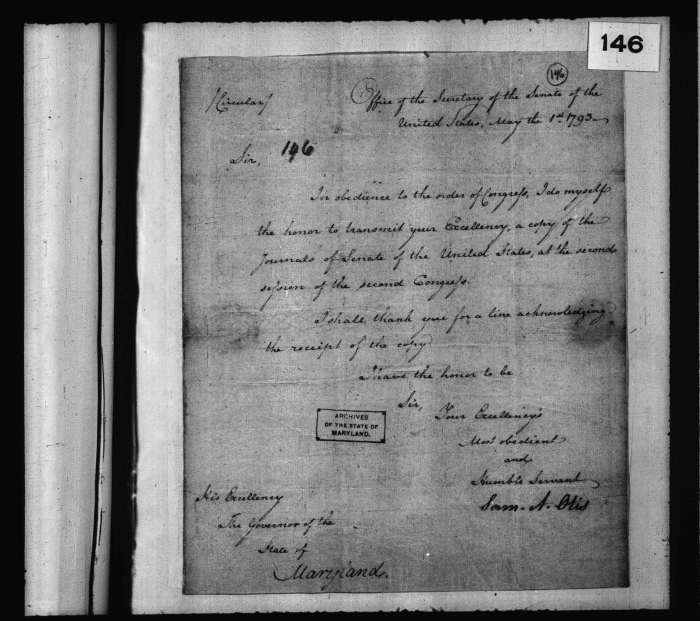 146
146
/Circular/
Office of the Secretary of the Senate of the
United States, May the 1st 1793.
Sir,
146
In obedience to the order of Congress, I do myself
the honor to transmit your Excellency, a copy of the
Journals of Senate of the United States, at the second
session of the second Congress.
I shall thank you for a line acknowledging
the receipt of the copy
I have the honor to be
Sir,
Your Excellency's
Most obedient
and
Humble Servant
Sam. A. Otis
ARCHIVES
OF THE STATE OF
MARYLAND.
His Excellency
The Governor of the
State of
Maryland.